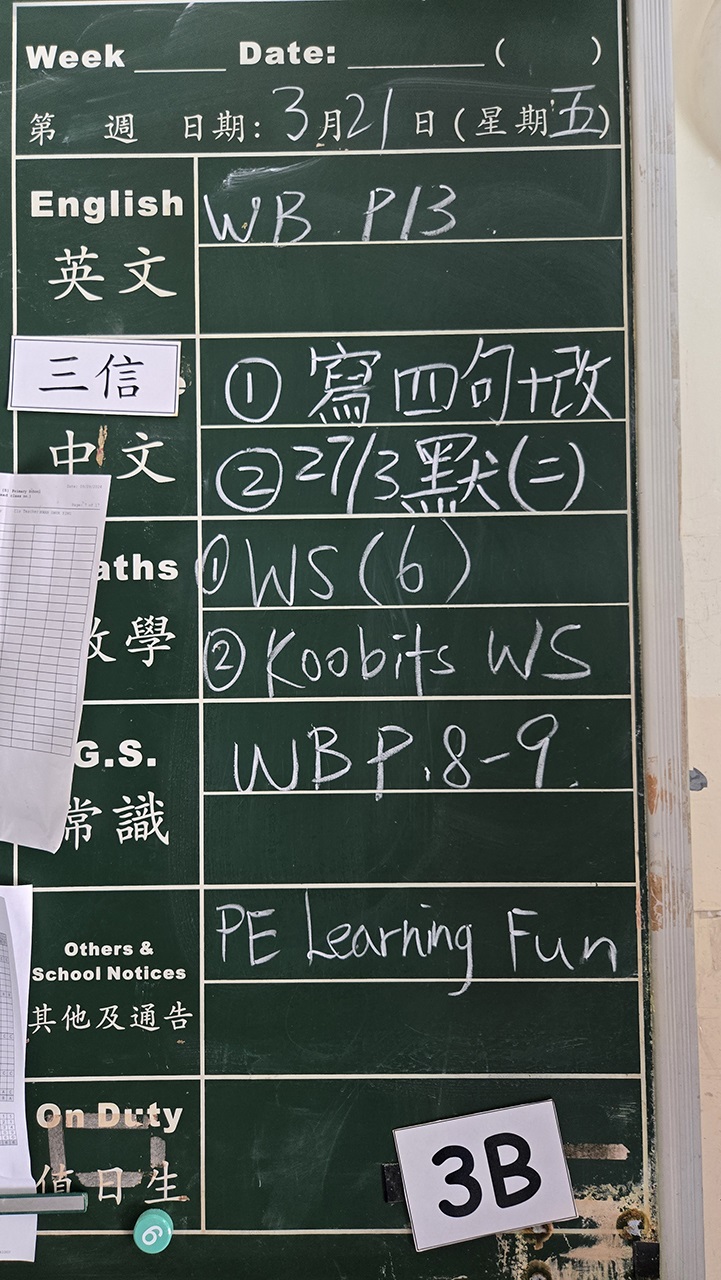 Week ____ Date: ________ ( )
第 週 日期: 3月21日(星期五)
English WB P13
英文
三信 ① 寫四句+改
中文 ② 27/3默(二)
aths ① WS(6)
數學 ② Koobits WS
G.S. WB P.8-9
常識
PE Learning Fun
Others &
School Notices
其他及通告
On Duty
值日生
3B
6